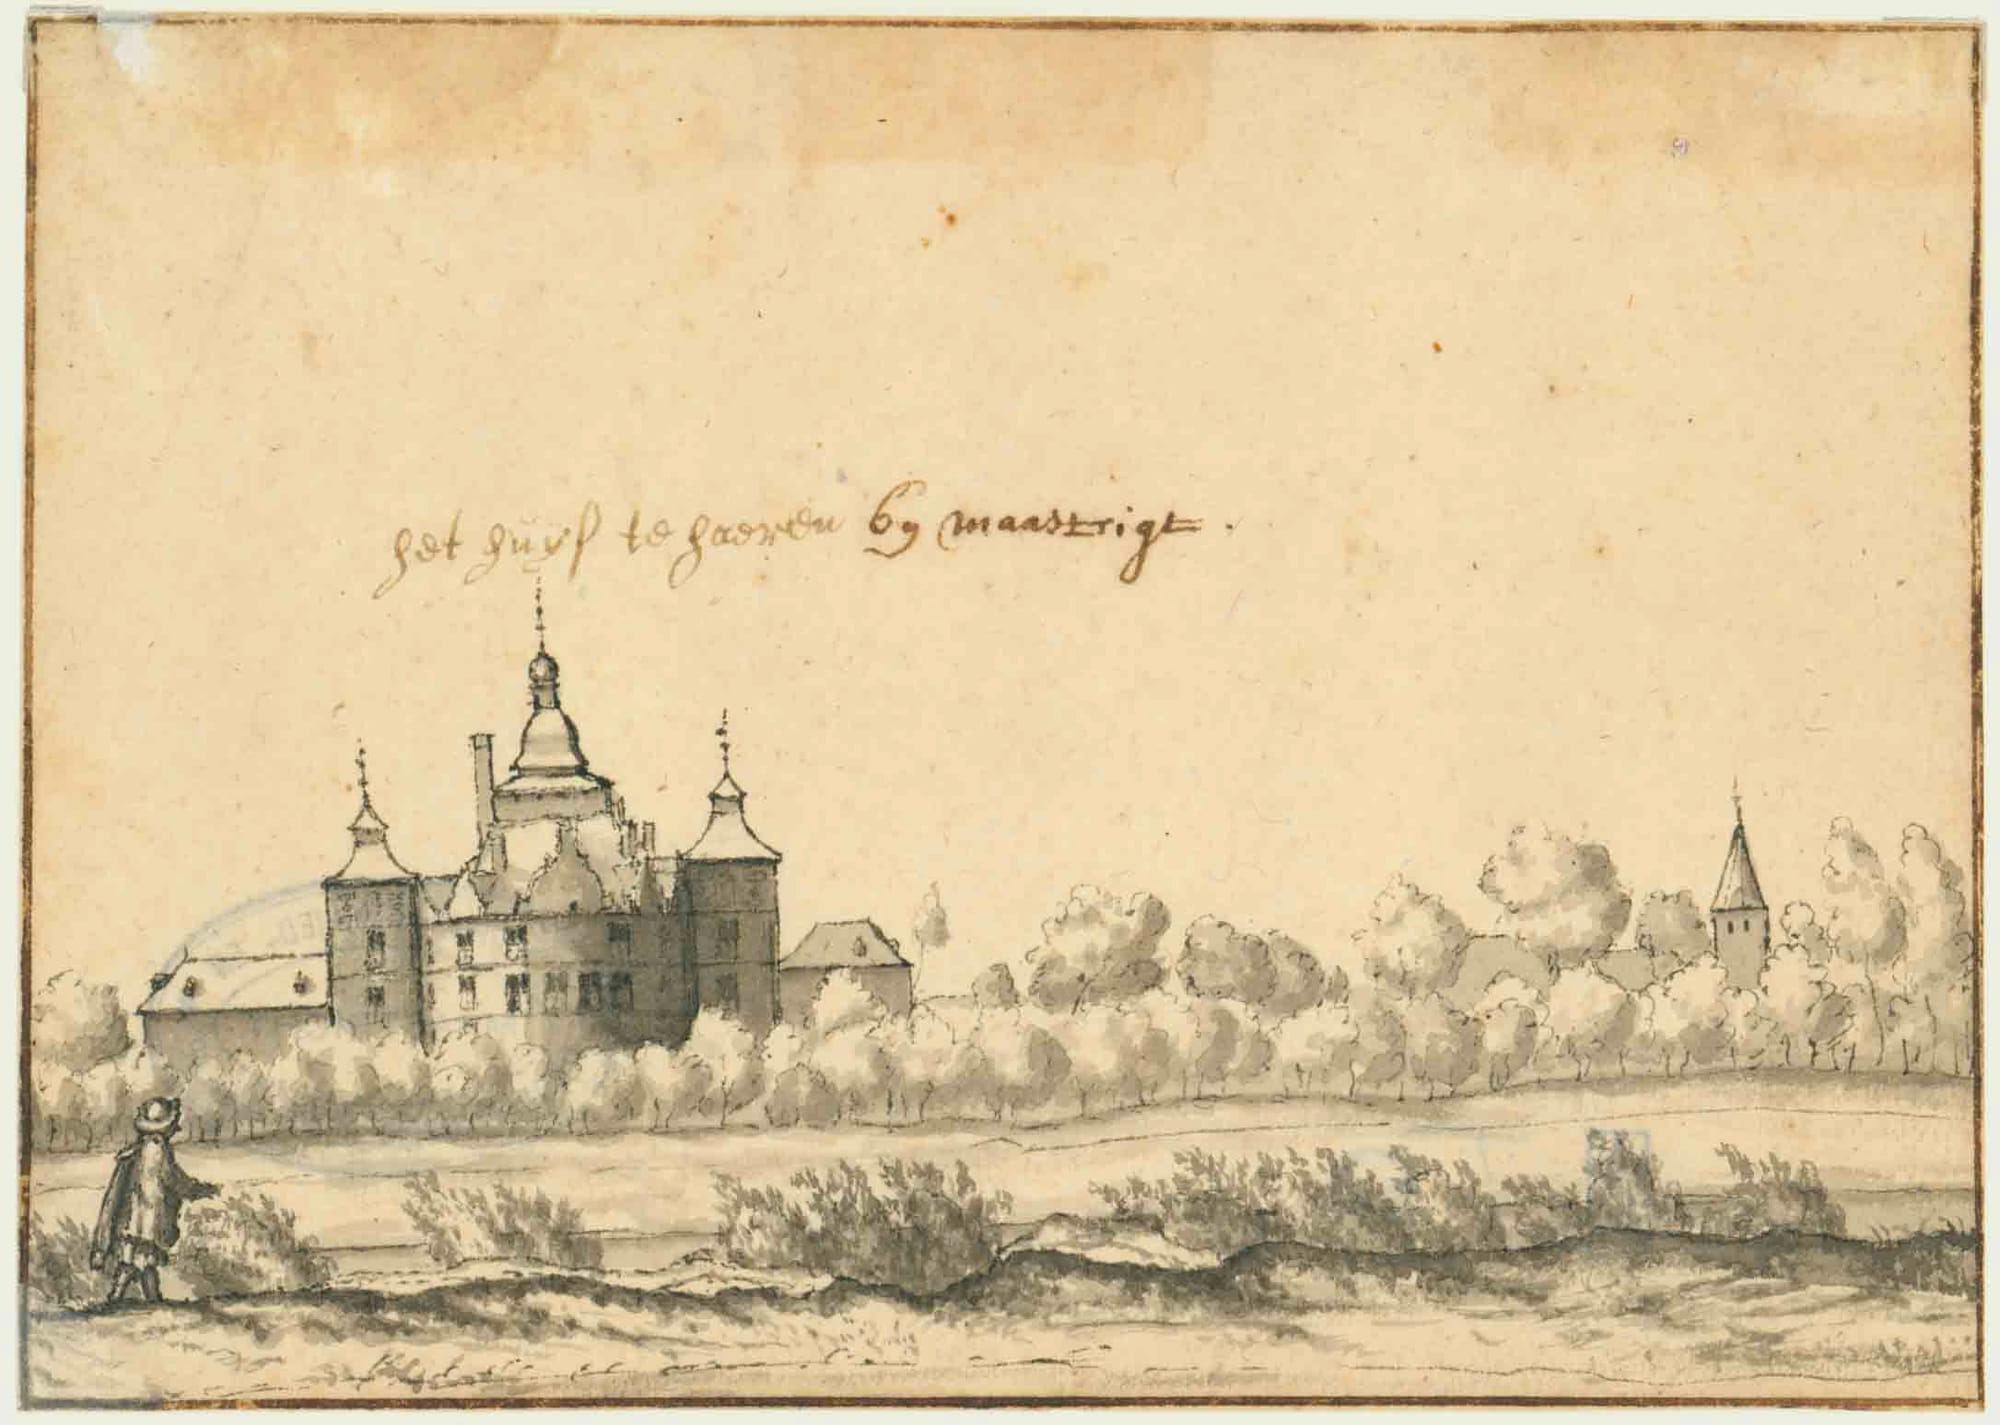 het huys te haeren by maastrigt.